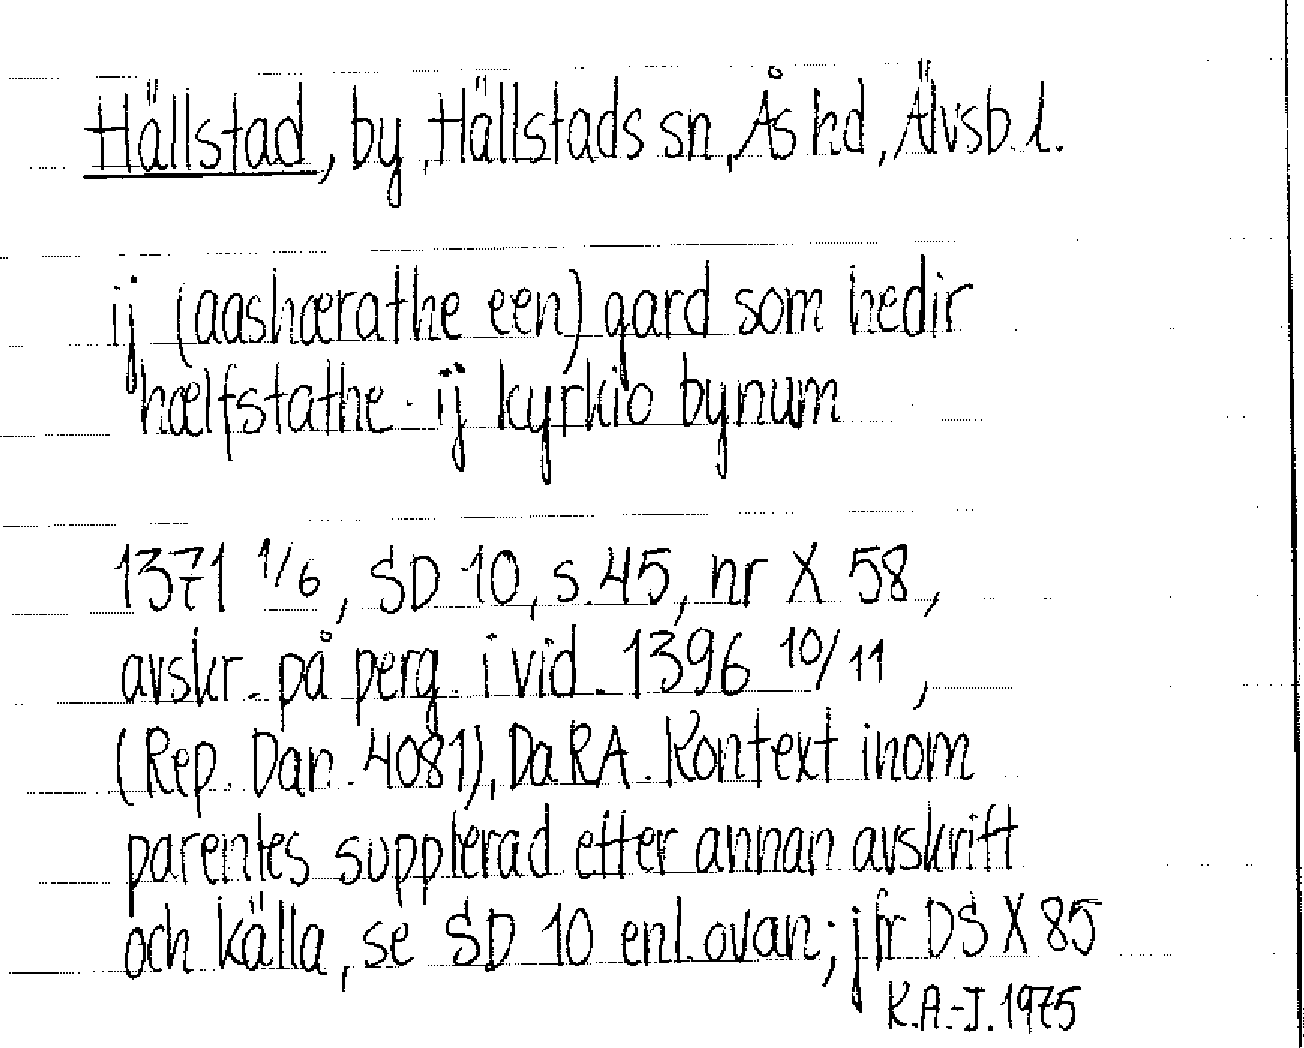 Hällstad, by, Hällstads sn, Ås hd, Älvsb.l.
ij (aashærathe een) gard som hedir
hælfstathe. ij kyrkio bynum
1371 1/6, SD 10, s.45, nr X 58,
avskr. på perg. i vid. 1396 10/11,
(Rep. Dan. 4081), DaRA. Kontext inom
parentes supplerad efter annan avskrift
och källa, se SD 10 enl. ovan; jfr DS X 85
K.A.-J. 1975